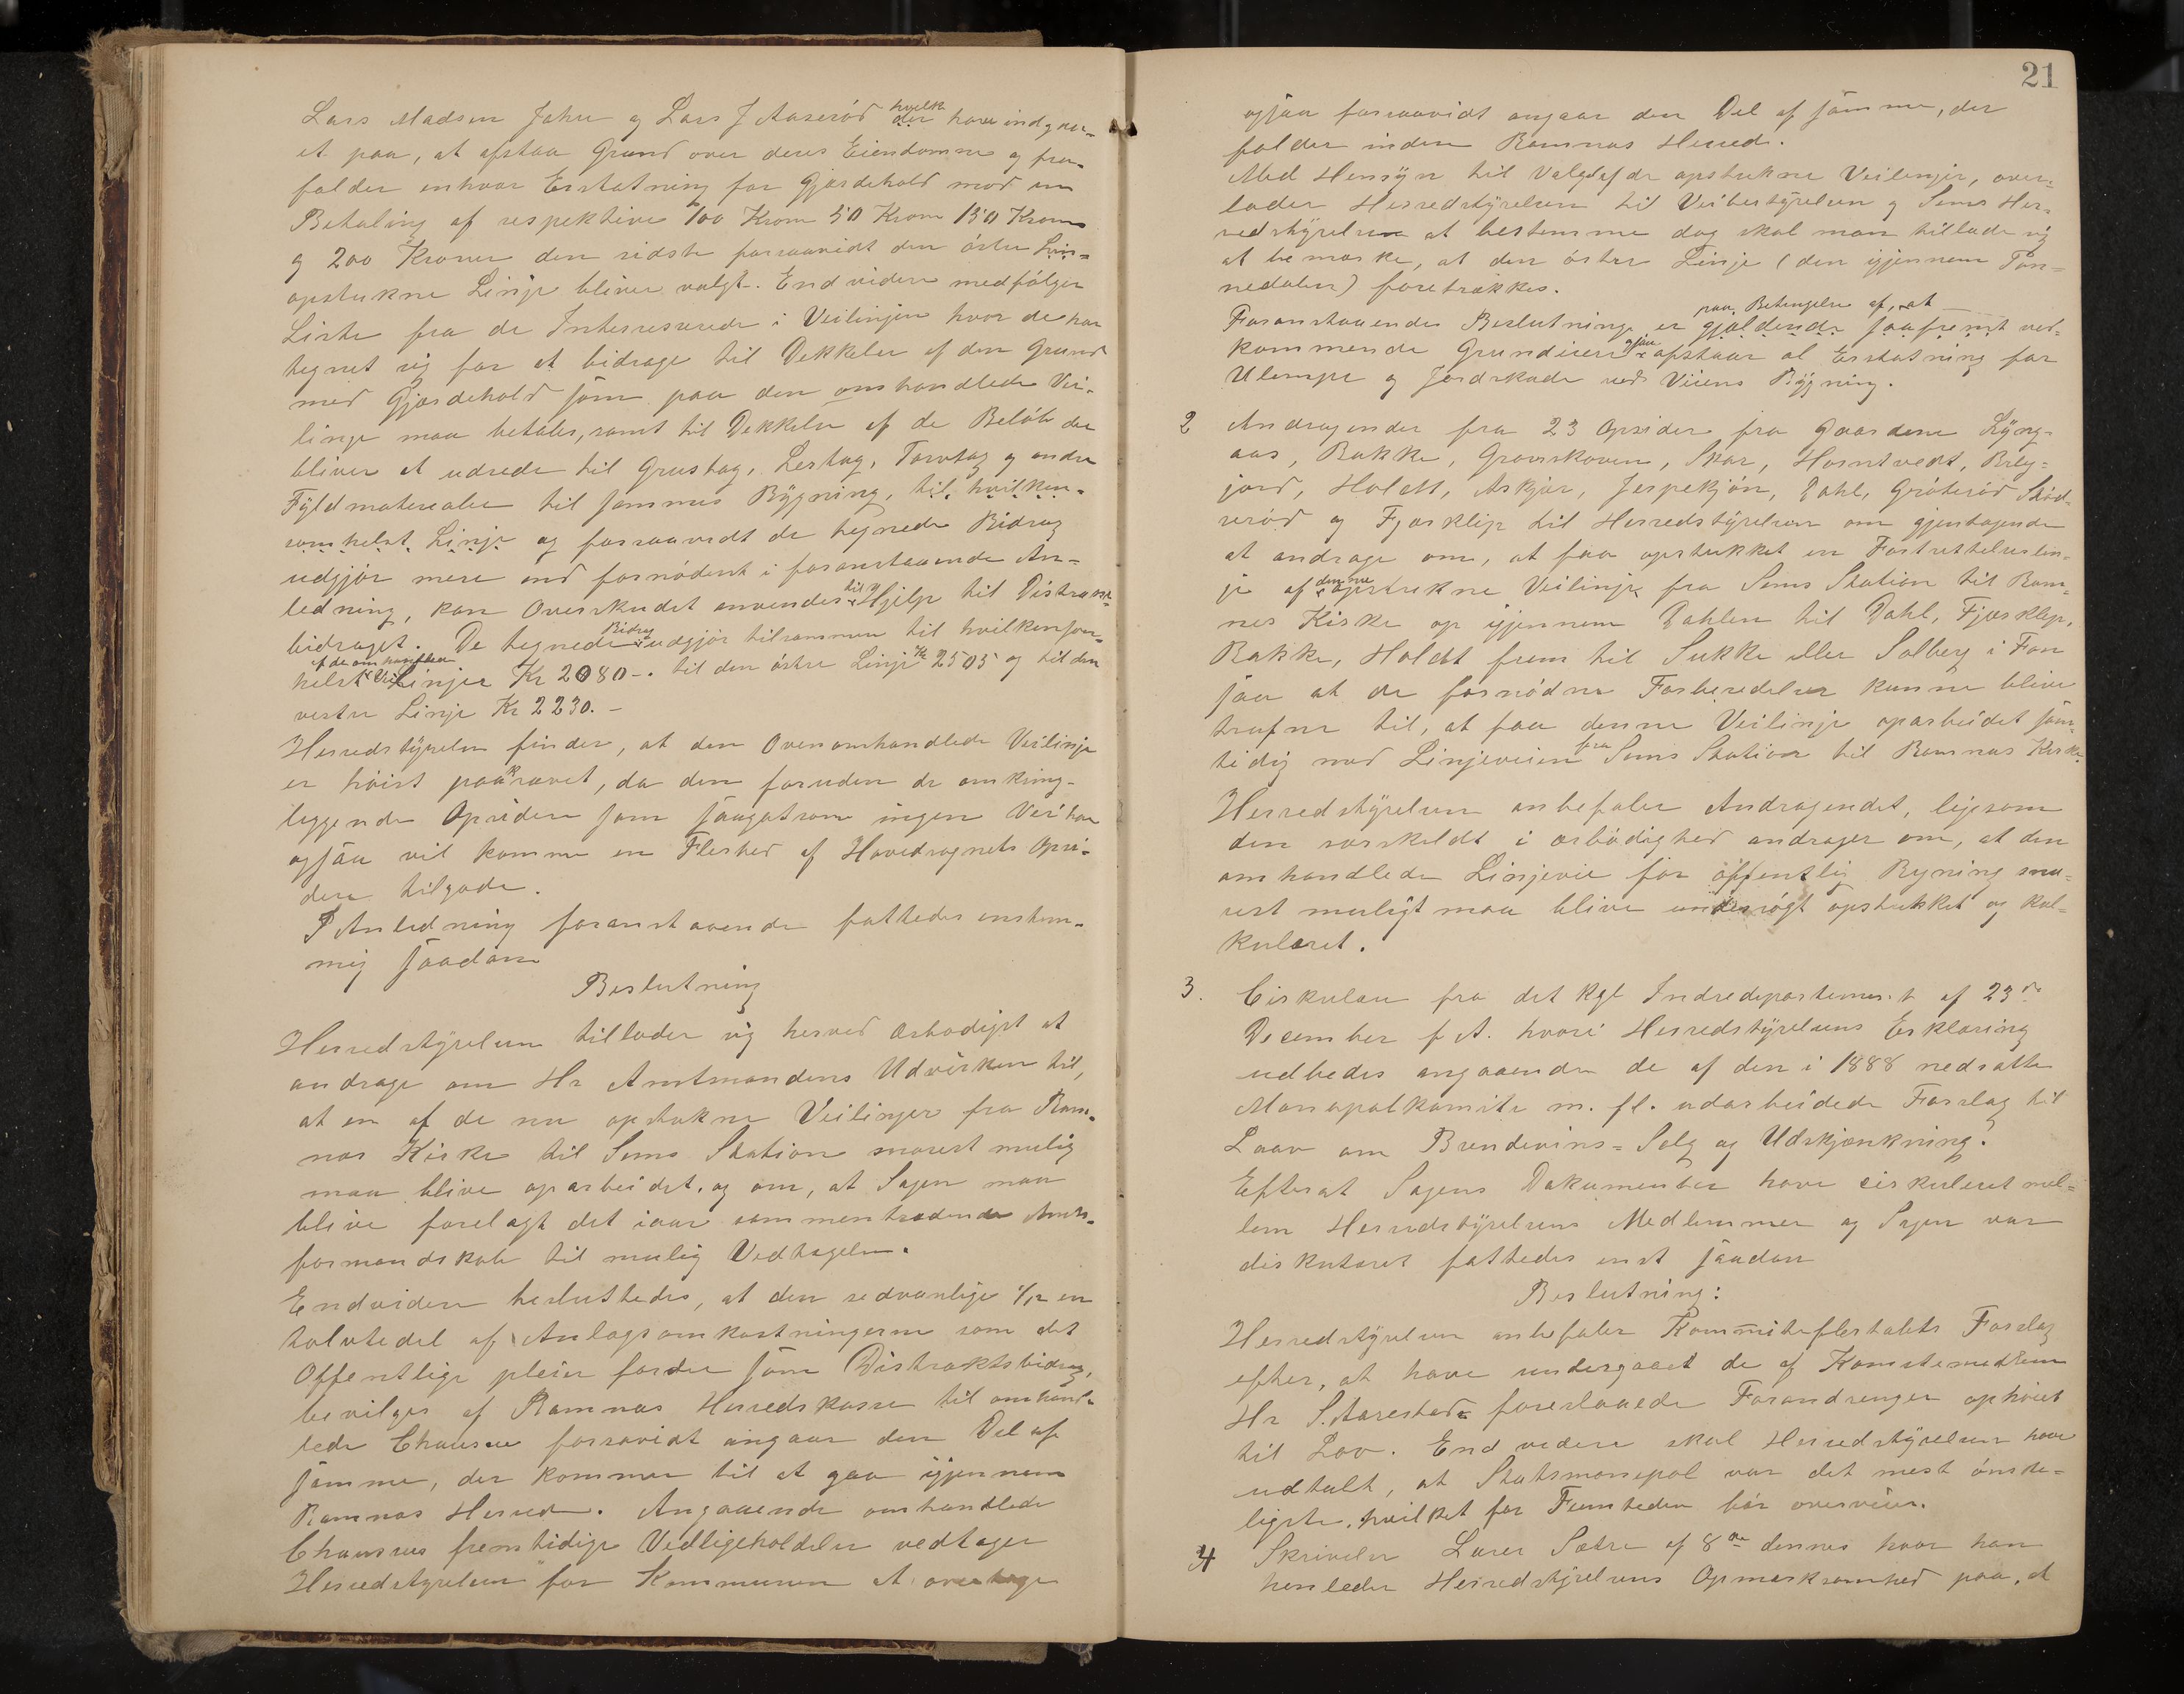 Lars Madsen Jahre og Lars J Aaserød hvilke der have indgaa-
et paa, at afstaa Grund over deres Eiendomme og fra-
falder enhver Erstatning for Gjærdehold mod en
Betaling af respektive 100 Kroner 50 Kroner 150 Kroner
og 200 Kroner den sidste forsaavidt den østre
opstukne Linje bliver valgt. Endvidere medfølger
Liste fra de Interesserede i Veilinjen hvor de har
tegnet sig for at bidrage til Dekkelse af den Grund
med Gjærdehold som paa den omhandlede Vei-
linje maa betales, samt til Dekkelse af de Beløb der
bliver at udrede til Grustag, Lertag, Torvtag og andre
Fyldmaterialer til sammes Bygning, til hvilken-
somhelst Linje og forsaavidt de tegnede Bidrag
udgjør mere end fornødent i foranstaaende An-
ledning, kan Overskudet anvendes til Hjelp til Distrikts-
bidraget. De tegnede Bidrag udgjør tilsammen til hvilkensom-
helst af de omhandlede Veilinjer Kr 2080-. til den østre Linje Kr 2505 og til den
vestre Linje Kr 2230.-
Herredstyrelsen finder, at den Ovenomhandlede Veilinje
er høist paakrævet, da den foruden de omkring-
liggende Opsidere som saagatsom ingen Vei har
ogsaa vil komme en Flerhed af Hovedsognets Opsi-
dere tilgode.
I Anledning foranstaaende fattedes enstem-
mig saadan
Beslutning
Herredstyrelsen tillader sig herved ærbødigst at
andrage om Hr Amtmandens Udvirken til,
at en af de nu opstukne Veilinjer fra Ram-
nes Kirke til Sems Station snarest mulig
maa blive oparbeidet, og om, at Sagen maa
blive forelagt det iaar sammentrædende Amts-
formandskab til mulig Vedtagelse.
Endvidere besluttedes, at den sedvanlige 1/12 en
tolvtedel af Anlægsomkostningerne som det
Offentlige pleier fordre som Distriktsbidrag,
bevilges af Ramnes Herredskasse til omhand-
lede Chausee forsavidt angaar den Del af
samme, der kommer til at gaa igjennem
Ramnes Herred. Angaaende omhandlede
Chausees fremtidige Vedligeholdelse vedtager
Herredstyrelsen for Kommunen at overtage
21
ogsaa forsaavidt angaar den Del af samme, der
falder inden Ramnes Herred.
Med Hensyn til Valget af de opstukne Veilinjer, over-
lader Herredstyrelsen til Veibestyrelsen og Sems Her-
redstyrelse at bestemme dog skal man tillade sig
at bemærke, at den østre Linje (den igjennem Tøn-
nedalen) foretrækkes.
Foranstaaende Beslutning er paa Betingelse af, at gjældende saafremt ved-
kommende Grundeiere ogsaa afstaar al Erstatning for
Ulempe og Jordskade ved Veiens Bygning.
2 Andragender fra 23 Opsidere fra Gaardene Lyng-
aas, Bakke, Gravskoven, Skar, Horntvedt, Bælg-
jord, Holdt, Askjær, Jerpekjøn, Dahl, Grøterød
og Fjærklep til Herredstyrelsen om gjentagende
at andrage om, at faa opstukket en Fortsættelseslin-
je af den nu opstukne Veilinje fra Sems Station til Ram-
nes Kirke op igjennem Dahlen til Dahl, Fjærklep,
Bakke, Holdt frem til Sukke eller Solberg i Fon
saa at de fornødne Forberedelser kunne blive
trufne til, at faa denne Veilinje oparbeidet sam-
tidig med Linjeveien fra Sems Station til Ramnes Kirke.
Herredstyrelsen anbefaler Andragendet, ligesom
den særskildt i ærbødighed andrager om, at den
omhandlede Linjevei for offentlig Regning sna-
rest muligt maa blive undersøgt opstukket og kal-
kuleret.
3. Cirkulær fra det Kgl Indredepartement af 23de
December f A. hvori Herredstyrelsens Erklæring
udbedes angaaende de af den i 1888 nedsatte
Monopolkomite m. fl. udarbeidede Forslag til
Laav om Brændevins-Salg og Udskjænkning.
Efterat Sagens Dokumenter have cirkuleret mel-
lem Herredstyrelsens Medlemmer og Sagen var
diskuteret fattedes enst saadan
Beslutning:
Herredstyrelsen anbefaler Kommiteflertalets Forslag
efter, at have undergaaet de af Komitemedlem
Hr S. Aarestads foreslaaede Forandringer ophøiet
til Lov. Endvidere skal Herredstyrelsen have
udtalt, at Statsmonopol var det mest ønske-
ligste, hvilket for Fremtiden bør overveies.
4 Skrivelse Lærer Sætre af 8de dennes hvor han
henleder Herredstyrelsens Opmærksomhed paa, at